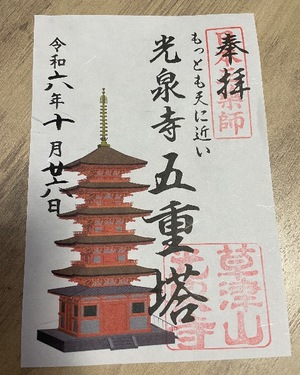 奉拝
日本三薬師
もっとも天に近い
光泉寺 五重塔
令和六年十月廿六日
草津山
光泉寺